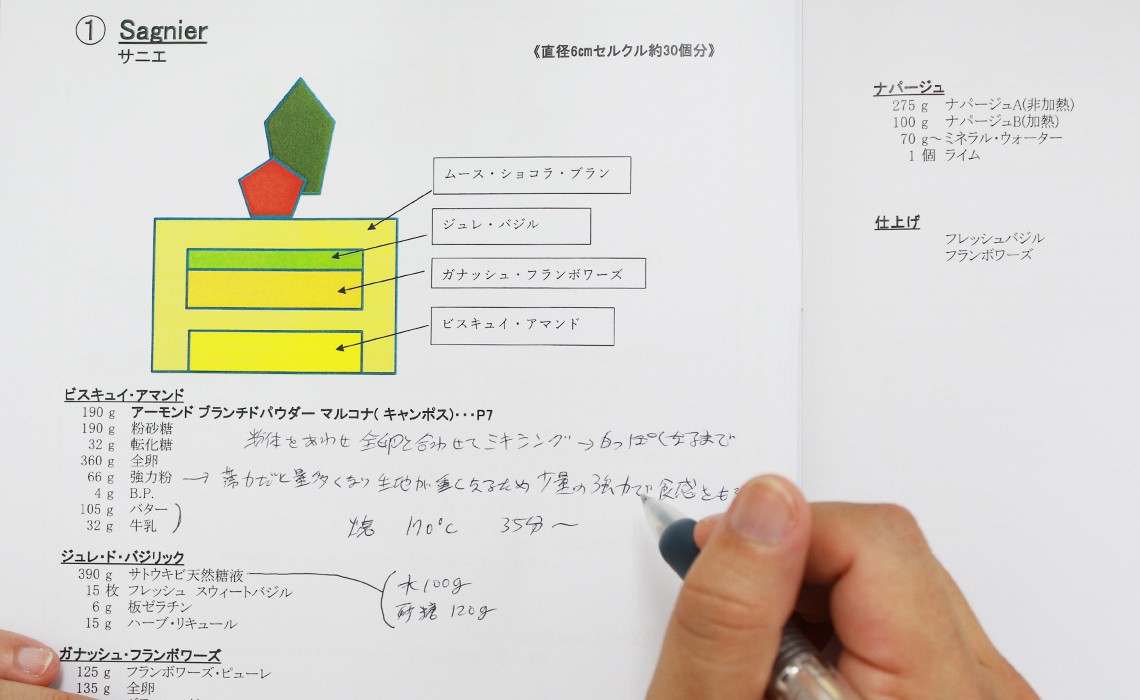 ① Sagnier
サニエ
《直径6cmセルクル約30個分》
ムース・ショコラ・ブラン
ジュレ・バジル
ガナッシュ・フランボワーズ
ビスキュイ・アマンド
ビスキュイ・アマンド
190 g アーモンド ブランチドパウダー マルコナ( キャンポス)・・・P7
190 g 粉砂糖
32 g 転化糖
360 g 全卵
66 g 強力粉
4 g B.P.
105 g バター
32 g 牛乳
粉体をあわせ 全卵と合わせてミキシング→白っぽくなるまで
→ 薄力だと量多くなり 生地が重くなるため 少量の強力で食感をも
焼 170℃ 35分〜
ジュレ・ド・バジリック
390 g サトウキビ天然糖液
15 枚 フレッシュ スウィートバジル
6 g 板ゼラチン
15 g ハーブ・リキュール
水100g
砂糖 120g
ガナッシュ・フランボワーズ
125 g フランボワーズ・ピューレ
135 g 全卵
ナパージュ
275 g ナパージュA(非加熱)
100 g ナパージュB(加熱)
70 g〜ミネラル・ウォーター
1 個 ライム
仕上げ
フレッシュバジル
フランボワーズ